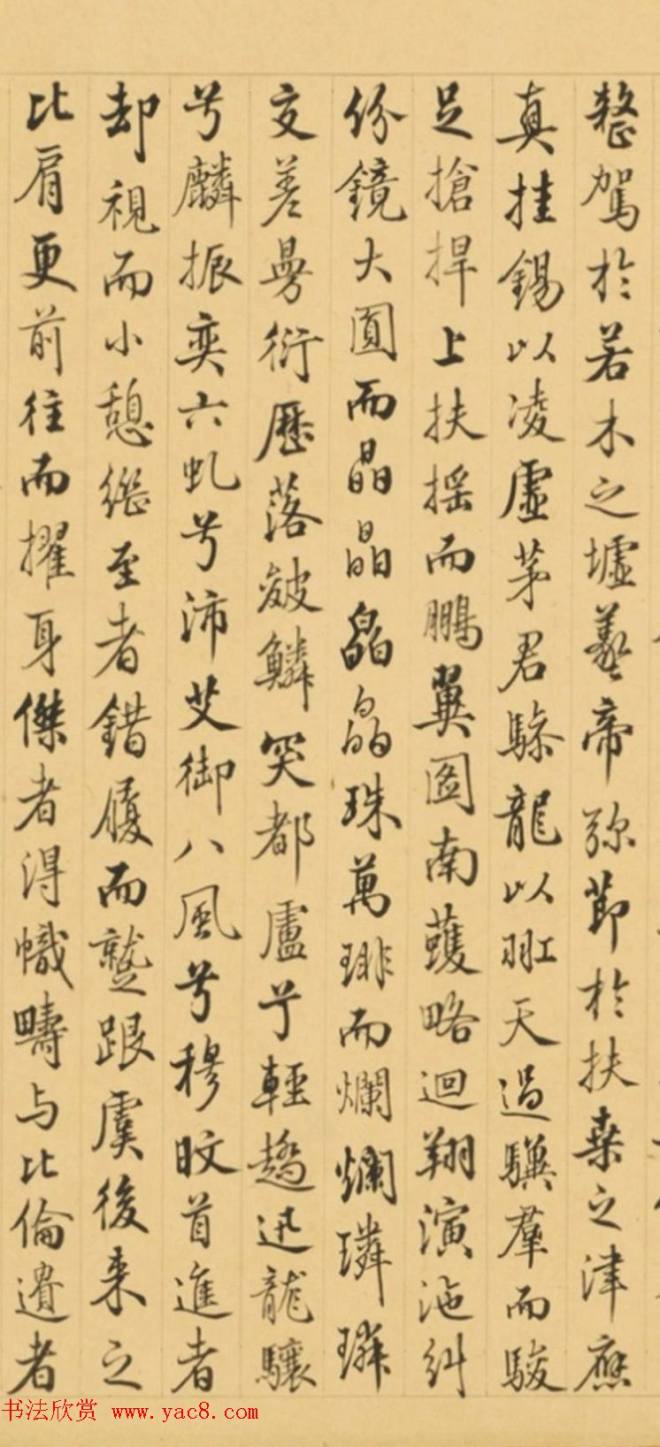 整駕於若木之墟羲帝弥節於扶桒之津應
真挂錫以凌虛茅君驂龍以羾天過驥羣而駿
足搶捍上扶摇而鵬翼圖南蒦略迴翔演沲糾
份鏡大圓而晶晶皛皛珠萬琲而爛爛璘璘
交差曼衍歷落皴鱗突都盧兮輕趫迅龍驤
兮麟振奕六虬兮沛艾御八風兮穆旼首進者
却視而小憩繼至者錯履而蹔跟虞後来之
比肩更前往而擢身傑者得幟疇与比倫遺者
书法欣赏 www.yac8.com